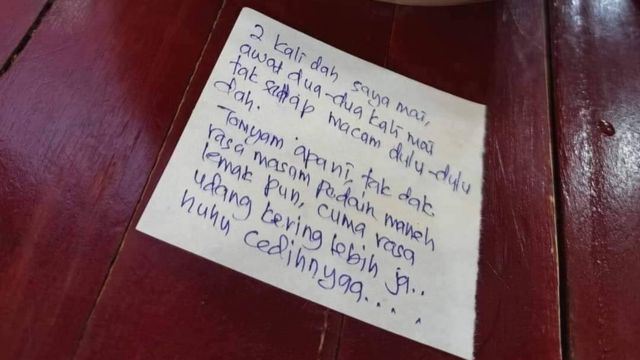 2 kali dah saya mai,
awat dua-dua kali mai
tak sedap macam dulu-dulu
dah.
Tomyam apa ni, tak dak
rasa masam padain maneh
lemak pun, cuma rasa
udang kering lebih ja..
huhu cedihnyaa....